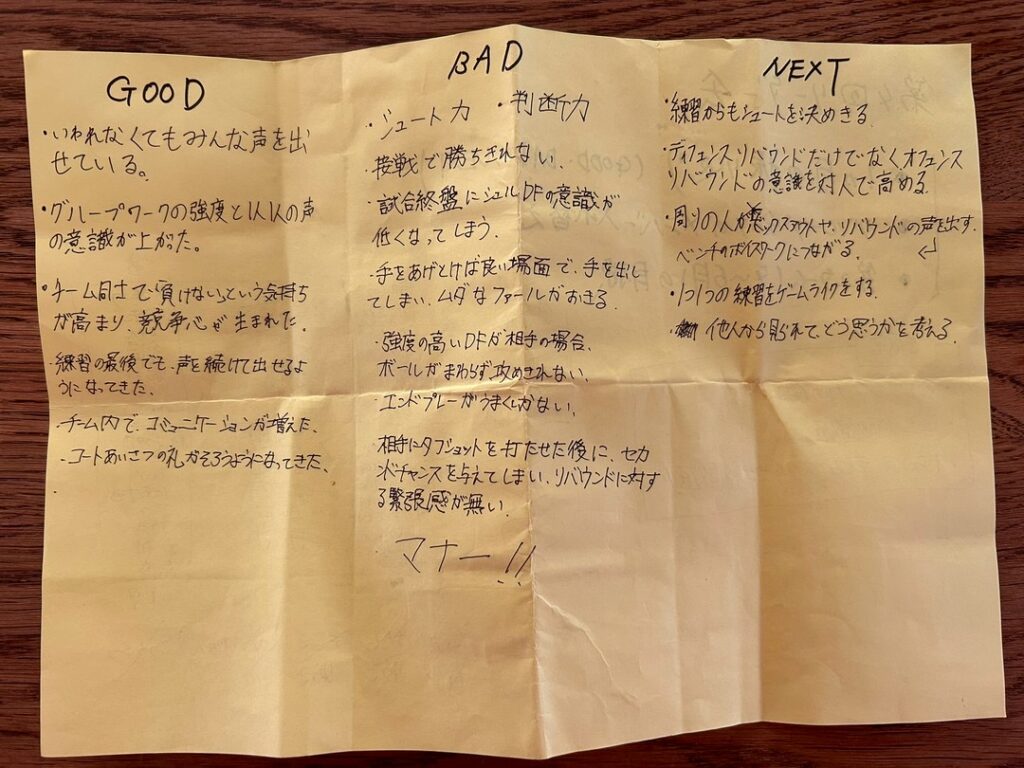 GOOD
・いわれなくてもみんな声を出
せている。
・グループワークの強度と1人1人の声
の意識が上がった。
・チーム同士で「負けない」という気持ち
が高まり、競争心が生まれた。
・練習の最後でも、声を続けて出せるよ
うになってきた。
・チーム内で、コミュニケーションが増えた。
・コートあいさつの礼がそろうようになってきた。
BAD
・シュート力 ・判断力
・接戦で勝ちきれない。
・試合終盤にシュルDFの意識が
低くなってしまう。
・手をあげとけば良い場面で、手を出し
てしまい、ムダなファールがおきる。
・強度の高いDFが相手の場合、
ボールがまわらず攻めきれない。
・エンドプレーがうまくいかない。
・相手にタフショットを打たせた後に、セカ
ンドチャンスを与えてしまい、リバウンドに対す
る緊張感が無い。
・マナー!!
NEXT
・練習からもシュートを決めきる。
・ディフェンスリバウンドだけでなくオフェンス
リバウンドの意識を対人で高める。
・周りの人がボックスアウトや、リバウンドの声を出す。
ベンチのボイスワークにつながる。
・1つ1つの練習をゲームライクをする。
・他人から見られて、どう思うかを考える。